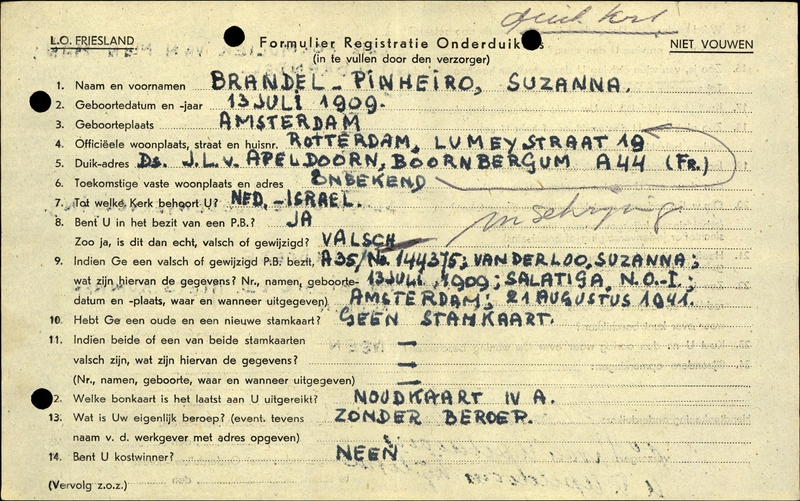 L.O. FRIESLAND
Formulier Registratie Onderduikers
NIET VOUWEN
(in te vullen door den verzorger)
1. Naam en voornamen BRANDEL - PINHEIRO, SUZANNA.
2. Geboortedatum en -jaar 13 JULI 1909.
3. Geboorteplaats AMSTERDAM
4. Officiëele woonplaats, straat en huisnr. ROTTERDAM, LUMEYSTRAAT 19
5. Duik-adres Ds. J.L.v. APELDOORN, BOORNBERGUM A44 (FR.)
6. Toekomstige vaste woonplaats en adres ONBEKEND
7. Tot welke Kerk behoort U? NED.-ISRAEL.
8. Bent U in het bezit van een P.B.? JA
Zoo ja, is dit dan echt, valsch of gewijzigd? VALSCH
9. Indien Ge een valsch of gewijzigd P.B. bezit, A35/No. 144375; VAN DER LOO, SUZANNA;
wat zijn hiervan de gegevens? Nr., namen, geboorte- 13 JULI, 1909; SALATIGA, N.O.-I;
datum en -plaats, waar en wanneer uitgegeven) AMSTERDAM; 21 AUGUSTUS 1941.
10. Hebt Ge een oude en een nieuwe stamkaart? GEEN STAMKAART.
11. Indien beide of een van beide stamkaarten —
valsch zijn, wat zijn hiervan de gegevens? —
(Nr., namen, geboorte, waar en wanneer uitgegeven) —
2. Welke bonkaart is het laatst aan U uitgereikt? NOODKAART IV A.
13. Wat is Uw eigenlijk beroep? (event. tevens ZONDER BEROEP.
naam v. d. werkgever met adres opgeven)
14. Bent U kostwinner? NEEN
(Vervolg z.o.z.)